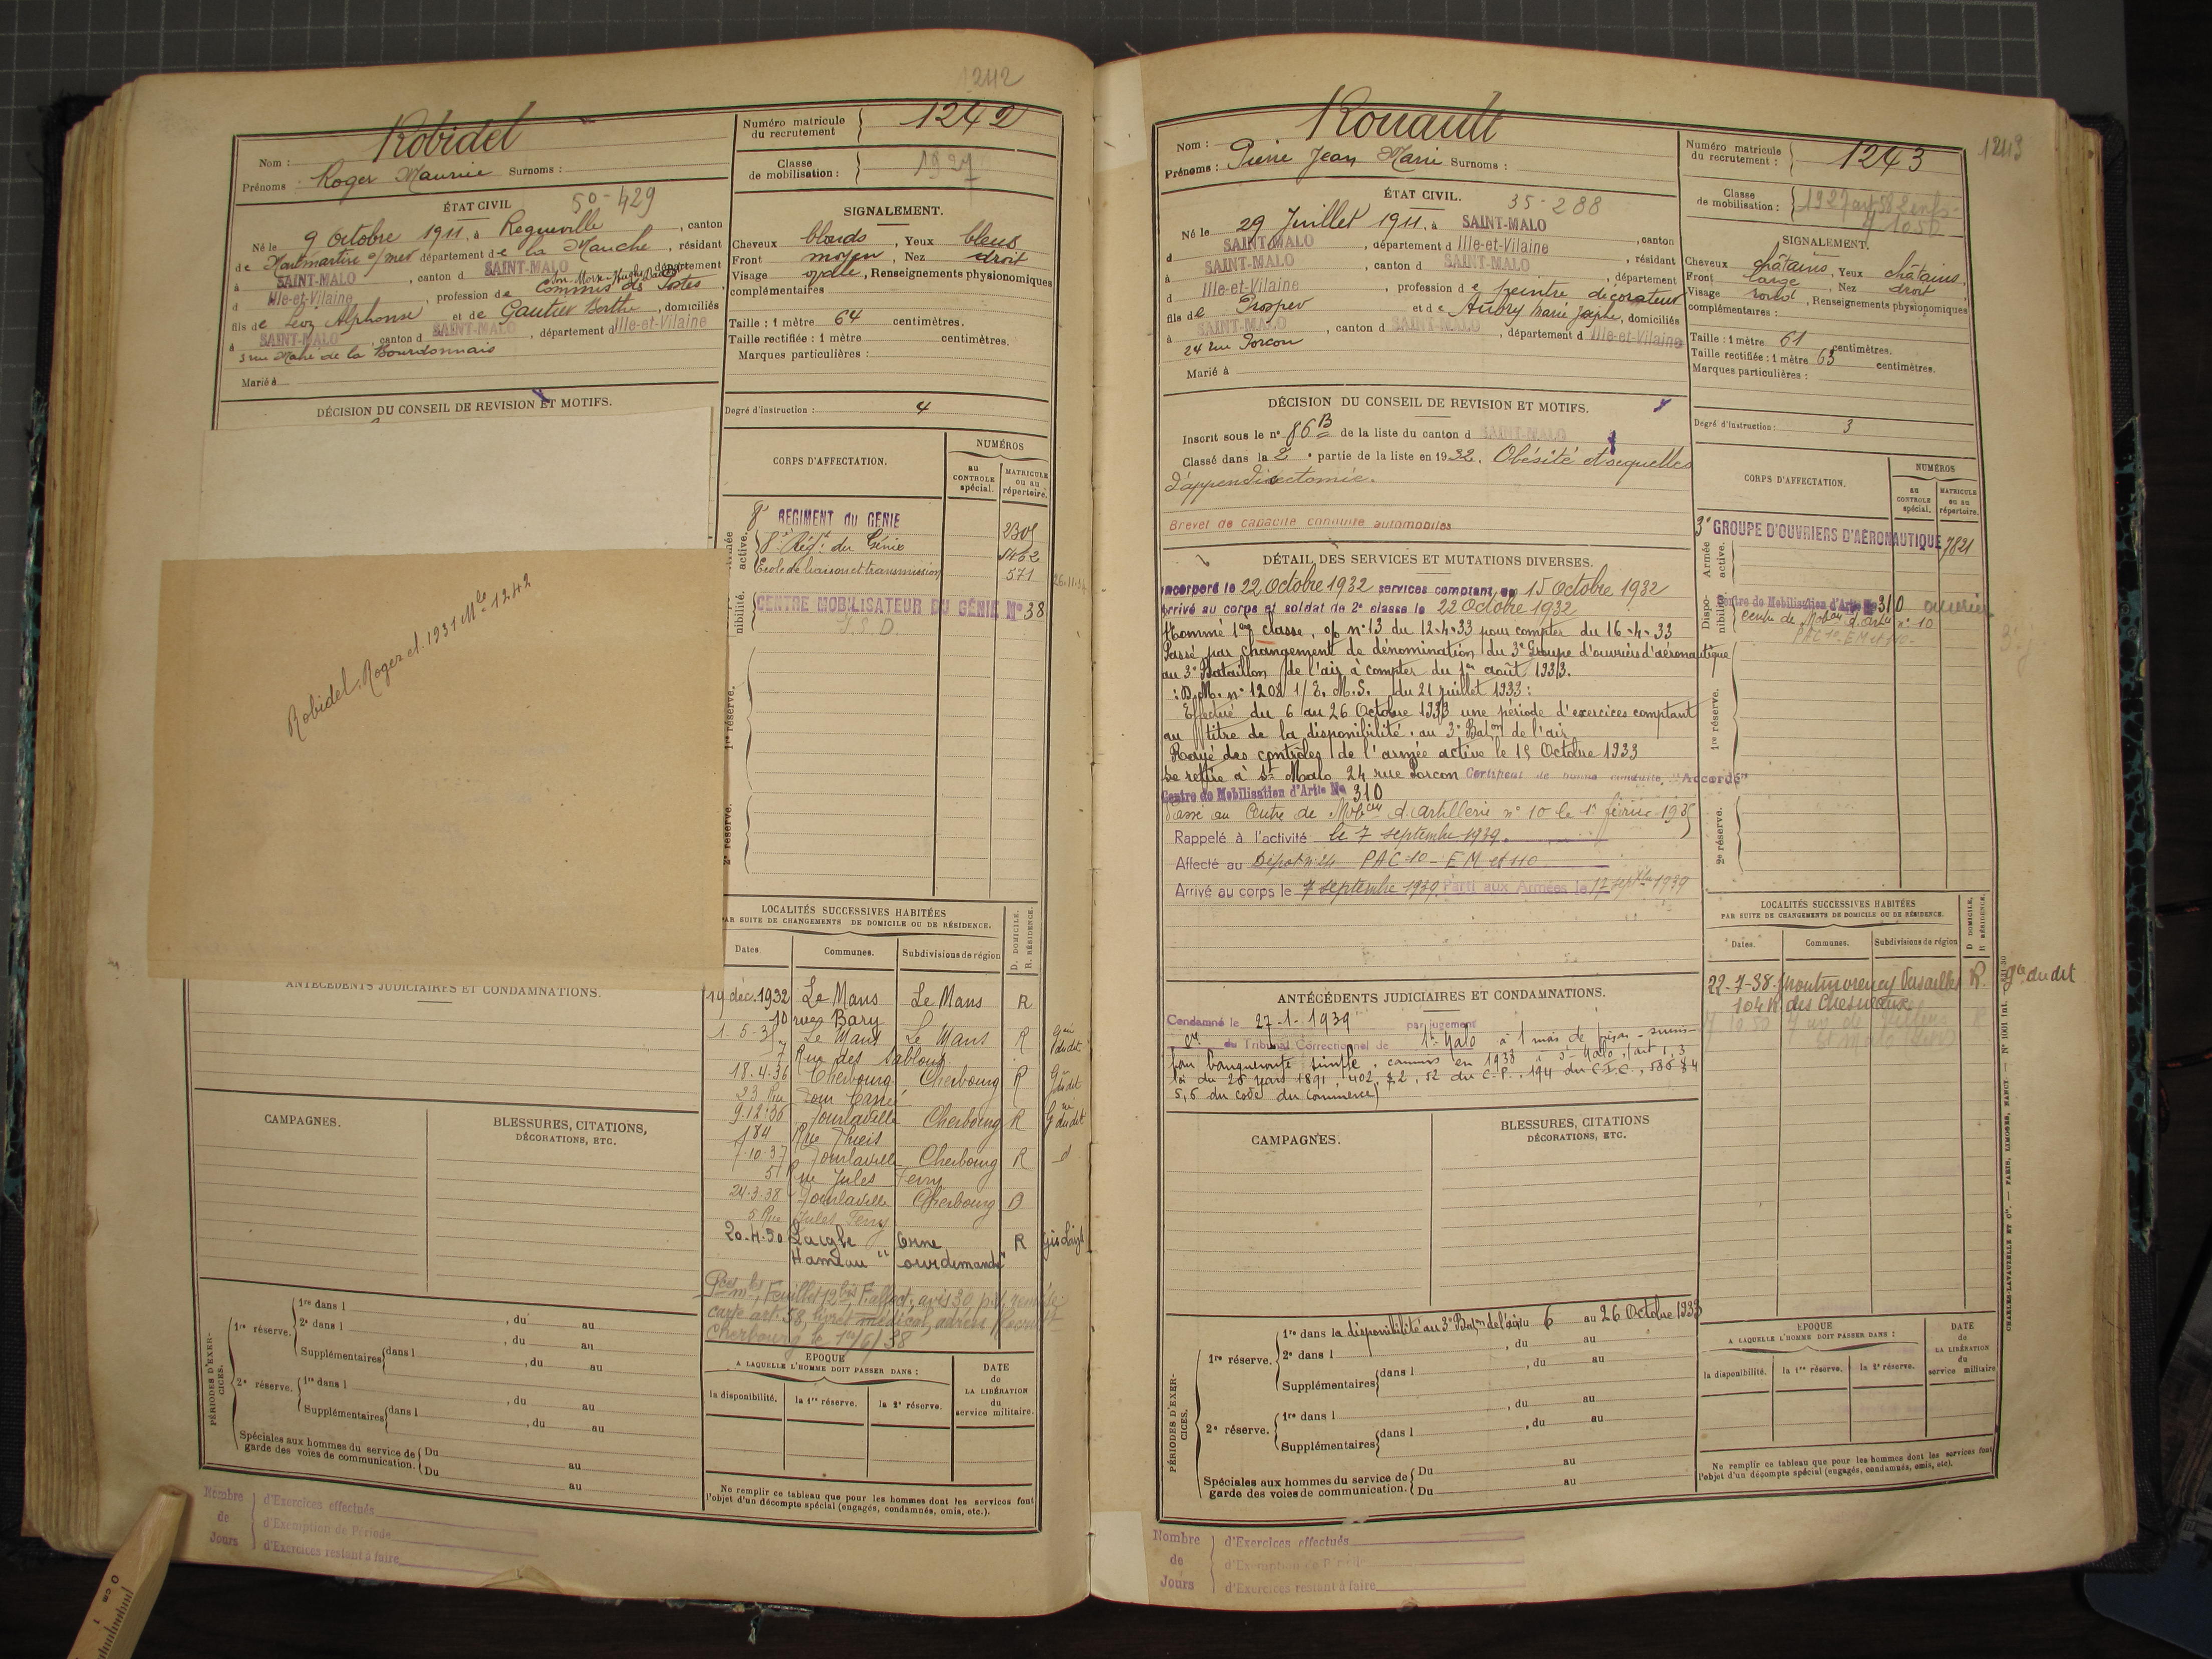 1242
Nom : Robidel
Prénoms : Roger Maurice Surnoms :
Numéro matricule du recrutement 1242
Classe de mobilisation : 1927
ÉTAT CIVIL 50-429
Né le 9 Octobre 1911, à Regneville, canton
de Montmartin s/mer département de la Manche, résidant
à SAINT-MALO, canton d SAINT-MALO, département
d Ille-et-Vilaine, profession de Commis des Postes
fils de Léon Alphonse et de Gautier Berthe, domiciliés
à SAINT-MALO, canton d SAINT-MALO, département d Ille-et-Vilaine
3 rue Mahé de la Bourdonnais
Marié à
SIGNALEMENT.
Cheveux blonds, Yeux bleus
Front moyen, Nez droit
Visage ovale, Renseignements physionomiques
complémentaires
Taille : 1 mètre 64 centimètres.
Taille rectifiée : 1 mètre centimètres.
Marques particulières :
Degré d'instruction : 4
DÉCISION DU CONSEIL DE REVISION ET MOTIFS.
Robidel, Roger cl. 1931 Mle 1242
CORPS D'AFFECTATION.
NUMÉROS
au CONTROLE spécial.
MATRICULE ou au répertoire.
active.
8e REGIMENT DU GENIE 2305
8e Régt du Génie 5462
Ecole de liaison et transmission 571 26-11-34
nibilité.
CENTRE MOBILISATEUR DU GÉNIE No 38
1re réserve.
2e réserve.
LOCALITÉS SUCCESSIVES HABITÉES
PAR SUITE DE CHANGEMENTS DE DOMICILE OU DE RÉSIDENCE.
D. DOMICILE.
R. RÉSIDENCE.
Dates. Communes. Subdivisions de région
19 déc. 1932 Le Mans Le Mans R
10 rue Bary
1-5-35 Le Mans Le Mans R
7 Rue des Sablons
18.4.36 Cherbourg Cherbourg R
33 Rue
9.12.36 Tourlaville Cherbourg R
184 Rue Thiers
7.10.37 Tourlaville Cherbourg R
51 Rue Jules Ferry
24.3.38 Tourlaville Cherbourg D
5 Rue Jules Ferry
20.4.50 Laigle Orne R
Hameau
Cherbourg le 1er/6/38
ANTÉCÉDENTS JUDICIAIRES ET CONDAMNATIONS.
CAMPAGNES.
BLESSURES, CITATIONS,
DÉCORATIONS, ETC.
PÉRIODES D'EXERCICES.
1re réserve. 1re dans l , du au
2e dans l , du au
Supplémentaires dans l , du au
2e réserve. 1re dans l , du au
Supplémentaires dans l , du au
Spéciales aux hommes du service de garde des voies de communication. Du au
Du au
EPOQUE
A LAQUELLE L'HOMME DOIT PASSER DANS :
la disponibilité. la 1re réserve. la 2e réserve.
DATE de LA LIBÉRATION du service militaire.
Ne remplir ce tableau que pour les hommes dont les services font
l'objet d'un décompte spécial (engagés, condamnés, omis, etc.).
Nombre de Jours
d'Exercices effectués
d'Exemption de Période
d'Exercices restant à faire
1243
Nom : Rouault
Prénoms : Pierre Jean Marie Surnoms :
Numéro matricule du recrutement : 1243
Classe de mobilisation : 1927
ÉTAT CIVIL. 35-288
Né le 29 Juillet 1911, à SAINT-MALO
d SAINT-MALO, département d Ille-et-Vilaine, canton
à SAINT-MALO, canton d SAINT-MALO, résidant
d Ille-et-Vilaine, profession de peintre décorateur, département
fils de Prosper et de Aubry Marie Josèphe, domiciliés
à SAINT-MALO, canton d SAINT-MALO, département d Ille-et-Vilaine
24 rue Porcon
Marié à
SIGNALEMENT.
Cheveux châtains, Yeux châtains,
Front large, Nez droit
Visage rond, Renseignements physionomiques
complémentaires :
Taille : 1 mètre 61 centimètres.
Taille rectifiée : 1 mètre 63 centimètres.
Marques particulières :
Degré d'instruction : 3
DÉCISION DU CONSEIL DE REVISION ET MOTIFS.
Inscrit sous le no 86 B de la liste du canton d SAINT-MALO
Classé dans la 2e partie de la liste en 1932. Obésité et séquelles
d'appendicectomie.
Brevet de capacité conduite automobiles
DÉTAIL DES SERVICES ET MUTATIONS DIVERSES.
Incorporé le 22 Octobre 1932 services comptant du 15 Octobre 1932
Arrivé au corps et soldat de 2e classe le 22 Octobre 1932
Nommé 1ère classe, o/o no 13 du 12-4-33 pour compter du 16-4-33
Passé par changement de dénomination du 3e Groupe d'ouvriers d'aéronautique
au 3e Bataillon de l'air à compter du 1er août 1933.
: D.M. no 1208 1/E.M.S. du 21 juillet 1933 :
Effectué du 6 au 26 Octobre 1933 une période d'exercices comptant
au titre de la disponibilité, au 3e Baton de l'air
Rayé des contrôles de l'armée active le 15 Octobre 1933
Se retire à St Malo 24 rue Porcon Certificat de bonne conduite, "Accordé"
Centre de Mobilisation d'Artie No 310
Passé au Centre de Mobon d'Artillerie no 10 le 1er février 1935
Rappelé à l'activité le 7 septembre 1939.
Affecté au Dépôt no 24 PAC 10 - EM et 110
Arrivé au corps le 7 septembre 1939. Parti aux Armées le 12 septbre 1939
CORPS D'AFFECTATION.
NUMÉROS
au CONTROLE spécial.
MATRICULE ou au répertoire.
Armée active.
3e GROUPE D'OUVRIERS D'AÉRONAUTIQUE 7821
Disponibilité
Centre de Mobilisation d'Artie No 310
Centre de Mobon d'Artie no 10
PAC 10 - EM et 110
1re réserve.
2e réserve.
ANTÉCÉDENTS JUDICIAIRES ET CONDAMNATIONS.
Condamné le 27-1-1939 par jugement
du Tribunal Correctionnel de St Malo à 1 mois de prison - sursis -
pour banqueroute simple, commis en 1938 à St Malo, (art 1, 3
loi du 26 Mars 1891, 402, 52 du C.P., 194 du C.I.C., 586 § 4
5, 6 du code du commerce)
LOCALITÉS SUCCESSIVES HABITÉES
PAR SUITE DE CHANGEMENTS DE DOMICILE OU DE RÉSIDENCE.
D. DOMICILE.
R. RÉSIDENCE.
Dates. Communes. Subdivisions de région
22-7-38 Montmorency Versailles R. Gie du dit
104 R. des Chesneaux
CAMPAGNES.
BLESSURES, CITATIONS
DÉCORATIONS, ETC.
PÉRIODES D'EXERCICES.
1re réserve. 1re dans la disponibilité au 3e Baton de l'air du 6 au 26 Octobre 1933
2e dans l , du au
Supplémentaires dans l , du au
2e réserve. 1re dans l , du au
Supplémentaires dans l , du au
Spéciales aux hommes du service de garde des voies de communication. Du au
Du au
EPOQUE
A LAQUELLE L'HOMME DOIT PASSER DANS :
la disponibilité. la 1re réserve. la 2e réserve.
DATE de LA LIBÉRATION du service militaire
Ne remplir ce tableau que pour les hommes dont les services font
l'objet d'un décompte spécial (engagés, condamnés, omis, etc).
CHARLES-LAVAUZELLE ET Cie. — PARIS, LIMOGES, NANCY. — No 1001 int.
Nombre de Jours
d'Exercices effectués
d'Exemption de Période
d'Exercices restant à faire
0 cm 1